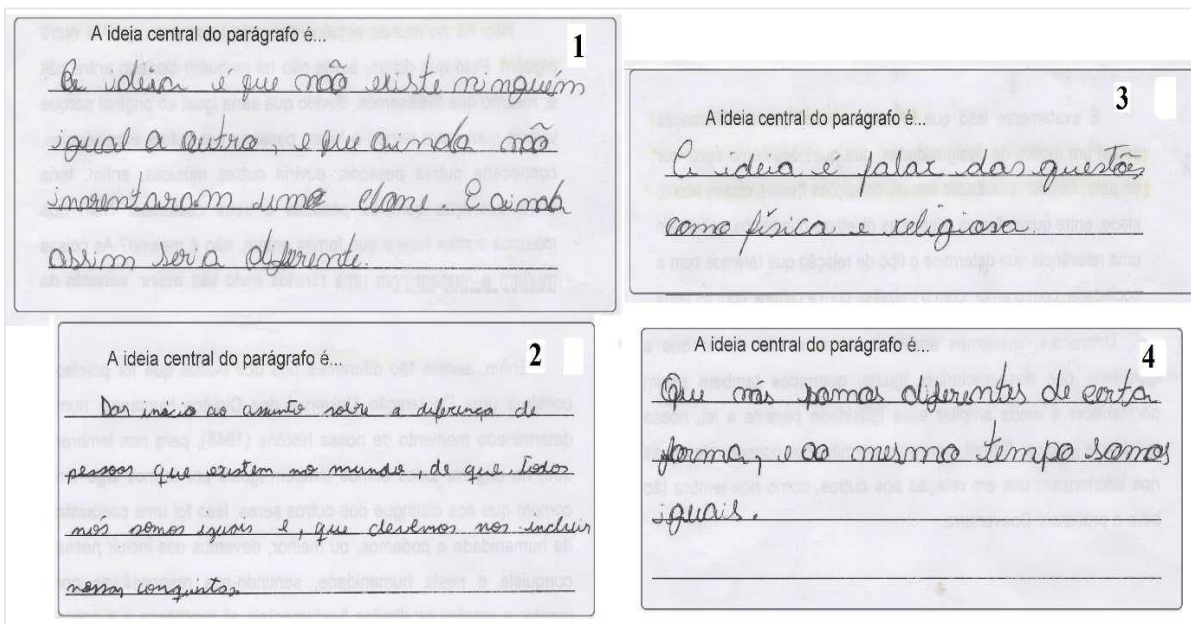 A ideia central do parágrafo é...
1
A ideia é que não existe ninguém
igual a outro, e que ainda não
inventaram uma clone. E ainda
assim sera diferente.
A ideia central do parágrafo é...
2
Dar inicio ao assunto sobre a diferença de
pessoas que existem no mundo, de que todos
nós somos iguais e, que devemos nos incluir
nessas conquistas.
3
A ideia central do parágrafo é...
A ideia é falar das questões
como física e religiosa.
A ideia central do parágrafo é...
4
Que nós somos diferentes de certa
forma, e ao mesmo tempo somos
iguais.